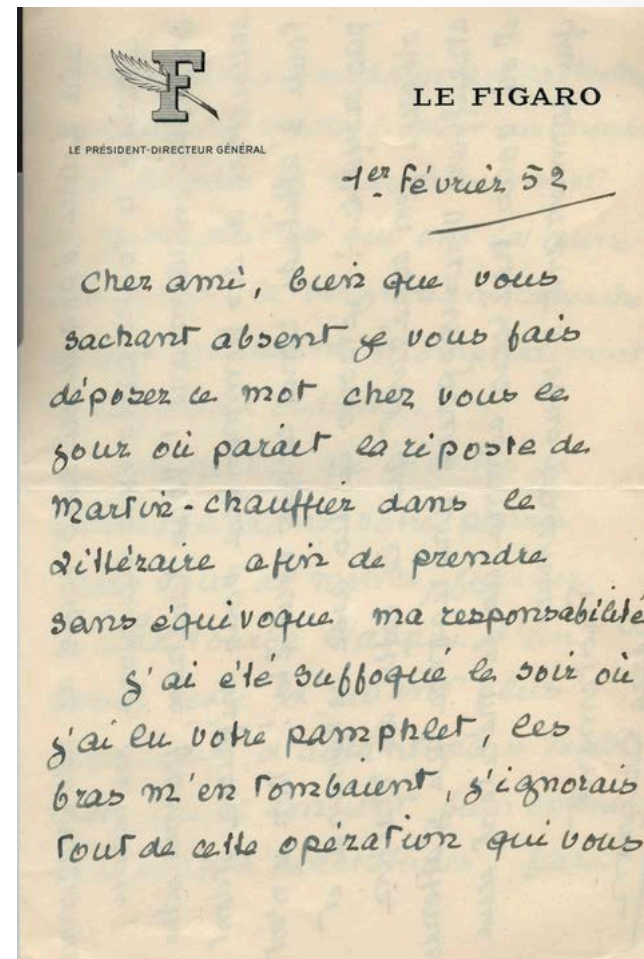 F
LE FIGARO
LE PRÉSIDENT-DIRECTEUR GÉNÉRAL
1er février 52
Cher ami, bien que vous
sachant absent je vous fais
déposer ce mot chez vous le
jour où paraît la riposte de
Martin-Chauffier dans le
Littéraire afin de prendre
sans équivoque ma responsabilité
j'ai été suffoqué le soir où
j'ai lu votre pamphlet, les
bras m'en tombaient, j'ignorais
tout de cette opération qui vous